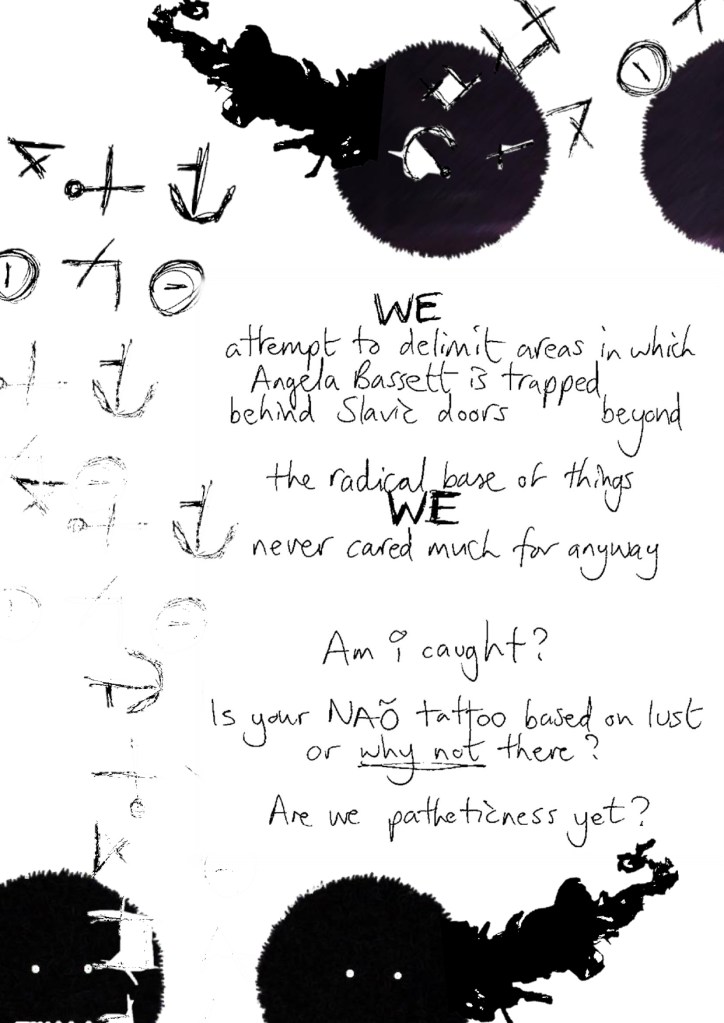 WE
attempt to delimit areas in which
Angela Bassett is trapped
behind Slavic doors beyond
the radical base of things
WE
never cared much for anyway
Am i caught?
Is your NAÕ tattoo based on lust
or why not there?
Are we patheticness yet?